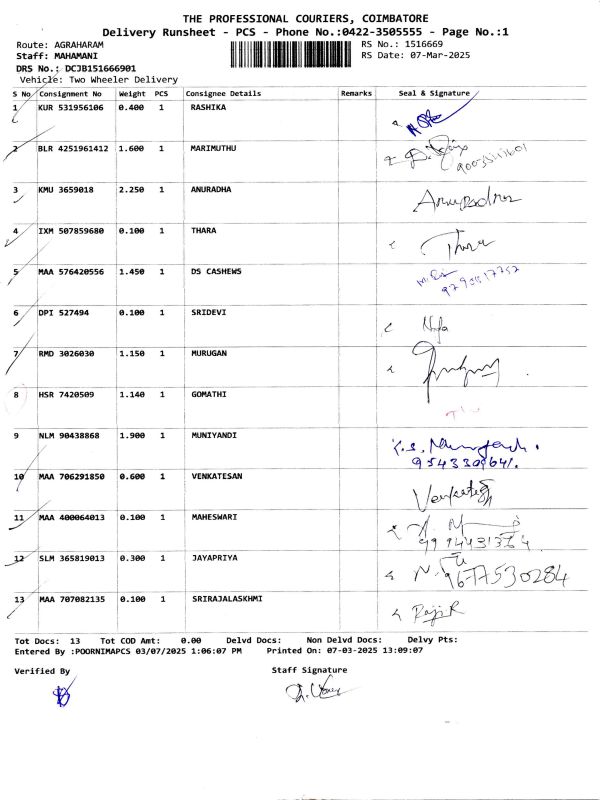 THE PROFESSIONAL COURIERS, COIMBATORE
Delivery Runsheet - PCS - Phone No.:0422-3505555 - Page No.:1
Route: AGRAHARAM RS No.: 1516669
Staff: MAHAMANI RS Date: 07-Mar-2025
DRS No.: DCJB151666901
Vehicle: Two Wheeler Delivery
S No Consignment No Weight PCS Consignee Details Remarks Seal & Signature
1 KUR 531956106 0.400 1 RASHIKA
2 BLR 4251961412 1.600 1 MARIMUTHU
3 KMU 3659018 2.250 1 ANURADHA Anuradha
4 IXM 507859680 0.100 1 THARA Thara
5 MAA 576420556 1.450 1 DS CASHEWS
6 DPI 527494 0.100 1 SRIDEVI
7 RMD 3026030 1.150 1 MURUGAN
8 HSR 7420509 1.140 1 GOMATHI
9 NLM 90438868 1.900 1 MUNIYANDI
10 MAA 706291850 0.600 1 VENKATESAN Venkatesh
11 MAA 400064013 0.100 1 MAHESWARI
12 SLM 365819013 0.300 1 JAYAPRIYA 9677530284
13 MAA 707082135 0.100 1 SRIRAJALASKHMI Raji R
Tot Docs: 13 Tot COD Amt: 0.00 Delvd Docs: Non Delvd Docs: Delvy Pts:
Entered By :POORNIMAPCS 03/07/2025 1:06:07 PM Printed On: 07-03-2025 13:09:07
Verified By Staff Signature